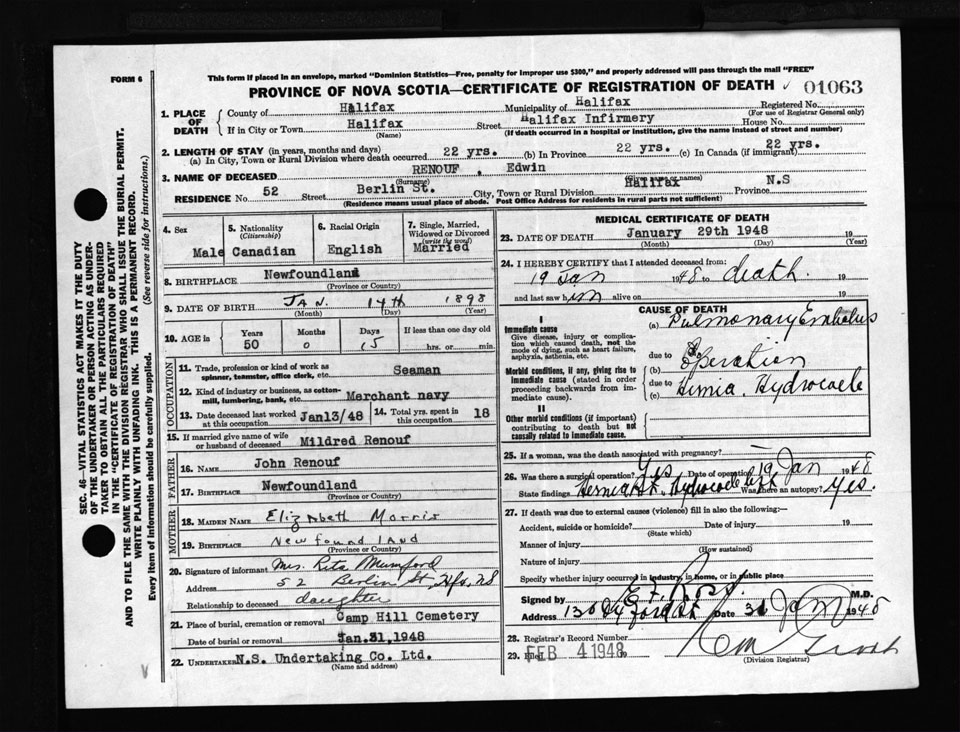 This form if placed in an envelope, marked "Dominion Statistics—Free, penalty for improper use $300," and properly addressed will pass through the mail "FREE"
FORM 6
PROVINCE OF NOVA SCOTIA—CERTIFICATE OF REGISTRATION OF DEATH 01063
SEC. 46—VITAL STATISTICS ACT MAKES IT THE DUTY
OF THE UNDERTAKER OR PERSON ACTING AS UNDER-
TAKER TO OBTAIN ALL THE PARTICULARS REQUIRED
IN THE "CERTIFICATE OF REGISTRATION OF DEATH"
AND TO FILE THE SAME WITH THE DIVISION REGISTRAR WHO SHALL ISSUE THE BURIAL PERMIT.
WRITE PLAINLY WITH UNFADING INK. THIS IS A PERMANENT RECORD.
Every item of information should be carefully supplied. (See reverse side for instructions.)
1. PLACE OF DEATH
County of Halifax Municipality of Halifax Registered No.
(For use of Registrar General only)
If in City or Town Halifax Street Halifax Infirmery House No.
(Name) (If death occurred in a hospital or institution, give the name instead of street and number)
2. LENGTH OF STAY (in years, months and days)
(a) In City, Town or Rural Division where death occurred 22 yrs. (b) In Province 22 yrs. (c) In Canada (if immigrant) 22 yrs.
3. NAME OF DECEASED RENOUF , Edwin
(Surname) (Given name or names)
RESIDENCE No. 52 Street Berlin St. City, Town or Rural Division Halifax Province N.S
(Residence means usual place of abode. Post Office Address for residents in rural parts not sufficient)
4. Sex Male
5. Nationality (Citizenship) Canadian
6. Racial Origin English
7. Single, Married, Widowed or Divorced (write the word) Married
8. BIRTHPLACE Newfoundland
(Province or Country)
9. DATE OF BIRTH JAN. 14th 1898
(Month) (Day) (Year)
10. AGE in Years 50 Months 0 Days 15 If less than one day old hrs. or min.
OCCUPATION
11. Trade, profession or kind of work as spinner, teamster, office clerk, etc. Seaman
12. Kind of industry or business, as cotton-mill, lumbering, bank, etc. Merchant navy
13. Date deceased last worked at this occupation Jan13/48
14. Total yrs. spent in this occupation 18
15. If married give name of wife or husband of deceased Mildred Renouf
FATHER
16. Name John Renouf
17. Birthplace Newfoundland
(Province or Country)
MOTHER
18. MAIDEN NAME Elizabeth Morris
19. Birthplace Newfoundland
(Province or Country)
20. Signature of informant Mrs. Rita Mumford
Address 52 Berlin St, Hfx, NS
Relationship to deceased daughter
21. Place of burial, cremation or removal Camp Hill Cemetery
Date of burial or removal Jan.31,1948
22. UNDERTAKER N.S. Undertaking Co. Ltd.
(Name and address)
MEDICAL CERTIFICATE OF DEATH
23. DATE OF DEATH January 29th 1948 19
(Month) (Day) (Year)
24. I HEREBY CERTIFY that I attended deceased from:
19 Jan 1948 to death. 19
and last saw him alive on 19
CAUSE OF DEATH
I
Immediate cause
Give disease, injury or complication which caused death, not the mode of dying, such as heart failure, asphyxia, asthenia, etc.
(a) Pulmonary Embolus
due to
Morbid conditions, if any, giving rise to immediate cause (stated in order proceeding backwards from immediate cause).
Operation
due to
(c) Hernia. Hydrocoele
II
Other morbid conditions (if important) contributing to death but not causally related to immediate cause.
25. If a woman, was the death associated with pregnancy? —
26. Was there a surgical operation? Yes Date of operation 19 Jan 1948
State findings Hernia Hydrocoele Was there an autopsy? Yes.
27. If death was due to external causes (violence) fill in also the following:—
Accident, suicide or homicide? Date of injury 19
(State which)
Manner of injury
(How sustained)
Nature of injury
Specify whether injury occurred in industry, in home, or public place
Signed by E. F. Ross. M.D.
Address Date 30 Jan 1948
28. Registrar's Record Number
29. Filed FEB 4 1948 19
(Division Registrar)